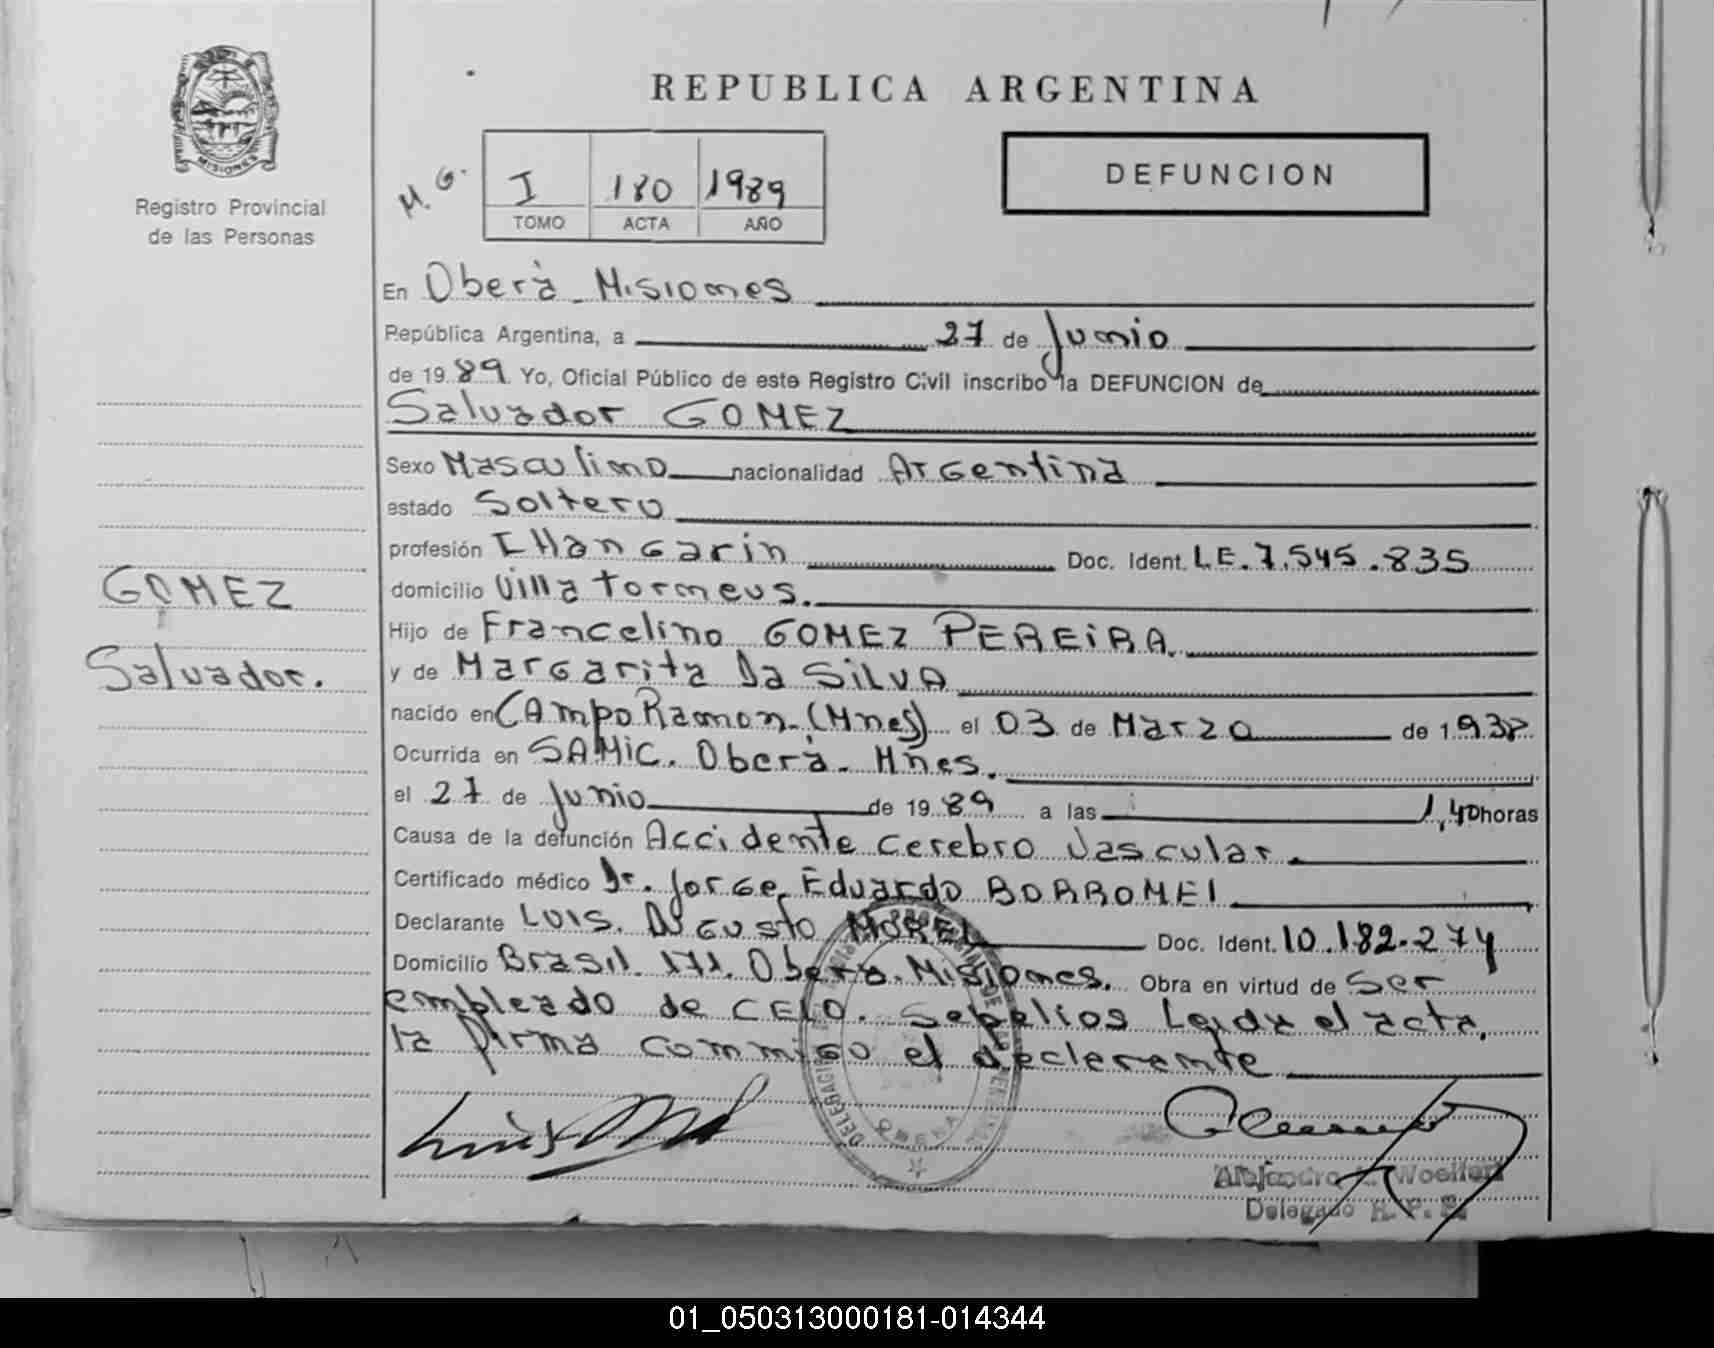 REPUBLICA ARGENTINA
MISIONES
Registro Provincial
de las Personas
M. G.
I 180 1989
TOMO ACTA AÑO
DEFUNCION
En Oberà Misiones
República Argentina, a 27 de Junio
de 1989 Yo, Oficial Público de este Registro Civil inscribo la DEFUNCION de
Salvador GOMEZ
Sexo Masculino nacionalidad Argentina
estado Soltero
profesión Doc. Ident. LE. 7.545.835
domicilio Villa Torneus.
GOMEZ
Salvador.
Hijo de Francelino GOMEZ PEREiRA.
y de Margarita Da SiLVA
nacido en CAmpo Ramon (Mnes) el 03 de Marzo de 193
Ocurrida en SAMiC. Oberà. Mnes.
el 27 de Junio de 1989 a las 1,40 horas
Causa de la defunción Accidente cerebro Vascular.
Certificado médico Dr. Jorge Eduardo BORROMEI
Declarante LUIS. AUGUSTO MOREL Doc. Ident. 10.182.274
Domicilio Brasil. 171. Obera. Misiones. Obra en virtud de Ser
empleado de CELO. Sepelios Leida el acta,
la firma conmigo el declerente
DELEGACION
OBERA
Alejandro Woelfert
Delegado R. P. P.
01_050313000181-014344